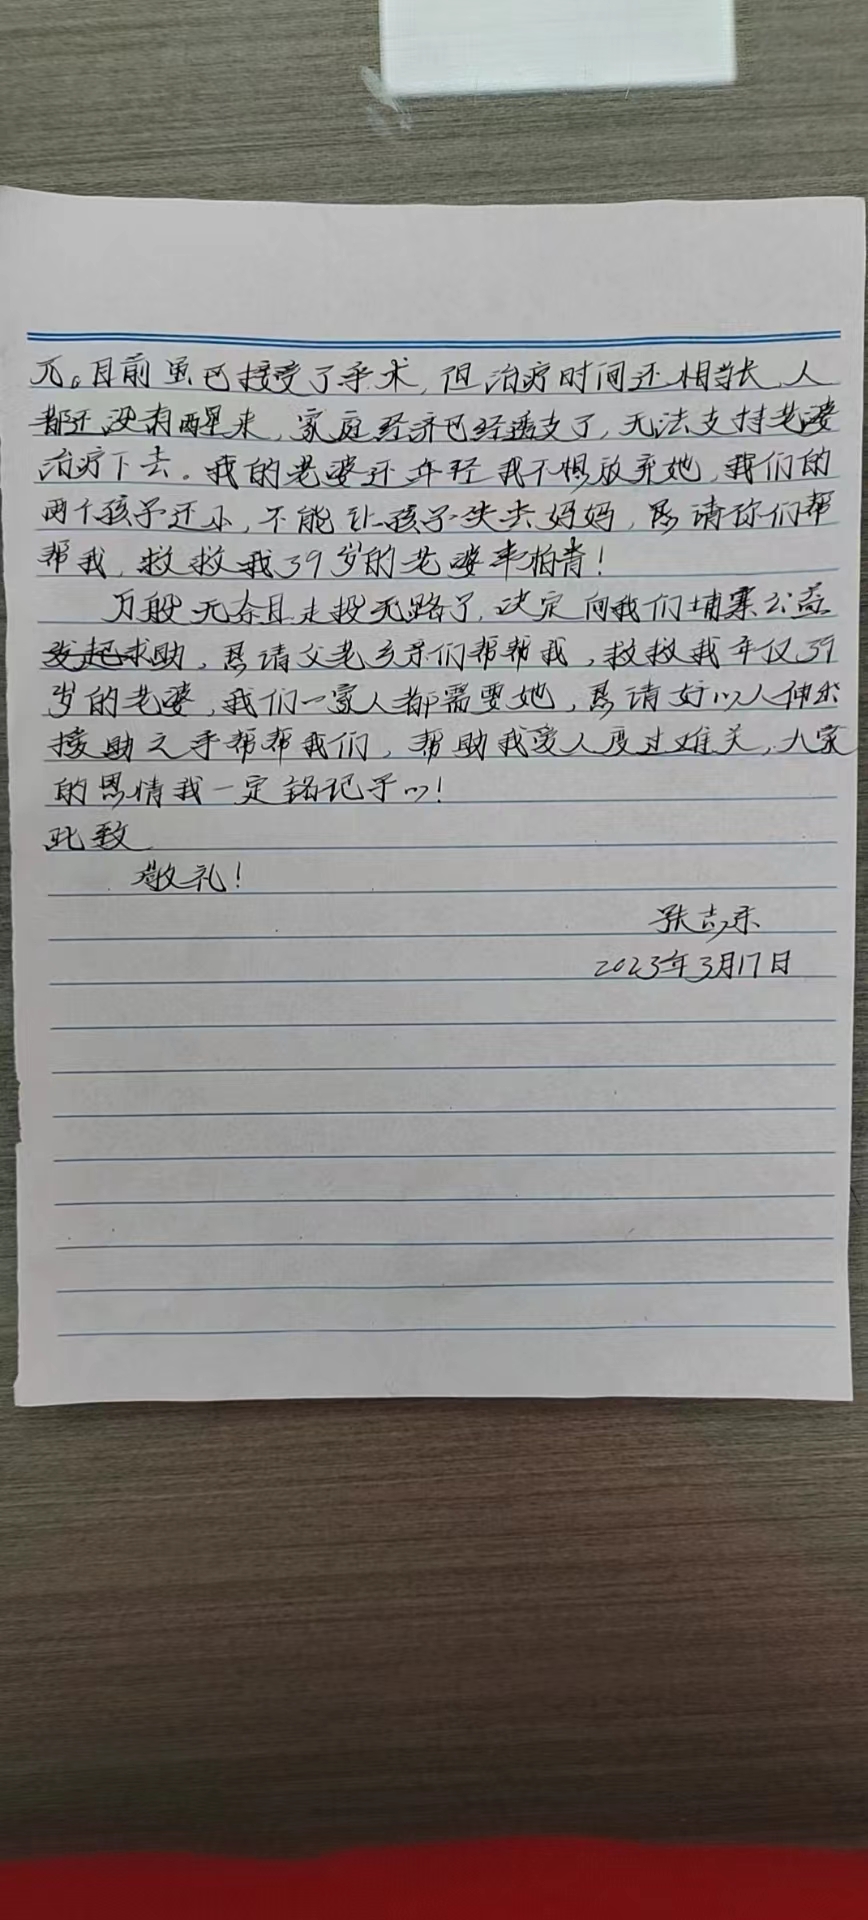 元。目前虽已接受了手术，但治疗时间还相当长，人
都还没有醒来，家庭经济已经透支了，无法支持老婆
治疗下去。我的老婆还年轻我不想放弃她，我们的
两个孩子还小，不能让孩子失去妈妈，恳请你们帮
帮我，救救我39岁的老婆柏青！
万般无奈且走投无路了，决定向我们埔寨公益
发起求助，恳请父老乡亲们帮帮我，救救我年仅39
岁的老婆，我们一家人都需要她，恳请好心人伸出
援助之手帮帮我们，帮助我爱人度过难关，大家
的恩情我一定铭记于心！
此致
敬礼！
张志东
2023年3月17日